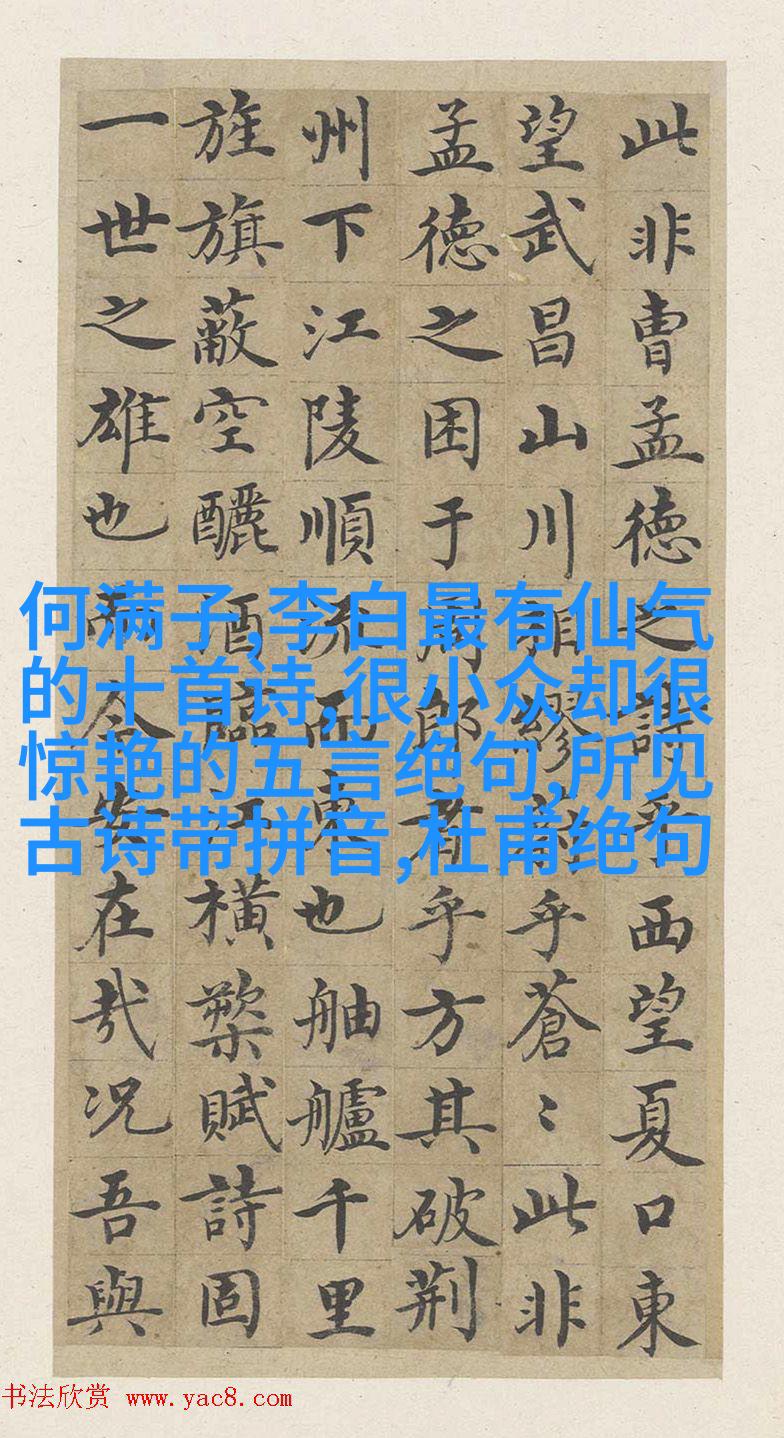 此非曹孟德之詩乎西望夏口東
望武昌山川相繆乎蒼〻此非
孟德之困于周郎者乎方其破荆
州下江陵順流而東也舳艫千里
旌旗蔽空釃酒臨江橫槊賦詩固
一世之雄也而今安在哉况吾與
何满子,李白最有仙气
的十首诗,很小众却很
惊艳的五言绝句,所见
古诗带拼音,杜甫绝句
书法欣赏 www.yac8.com